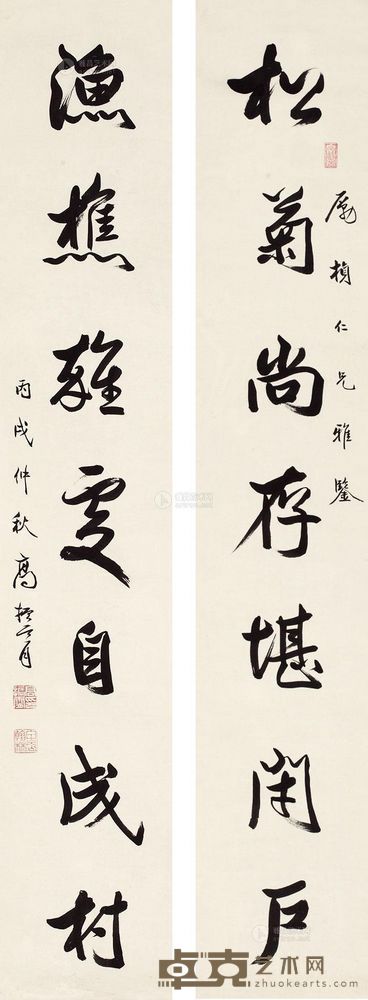 松菊尚存堪閉戶
勵楨仁兄雅鑒
漁樵雜處自成村
丙戌仲秋高振霄
卓克艺术网
www.zhuokearts.com